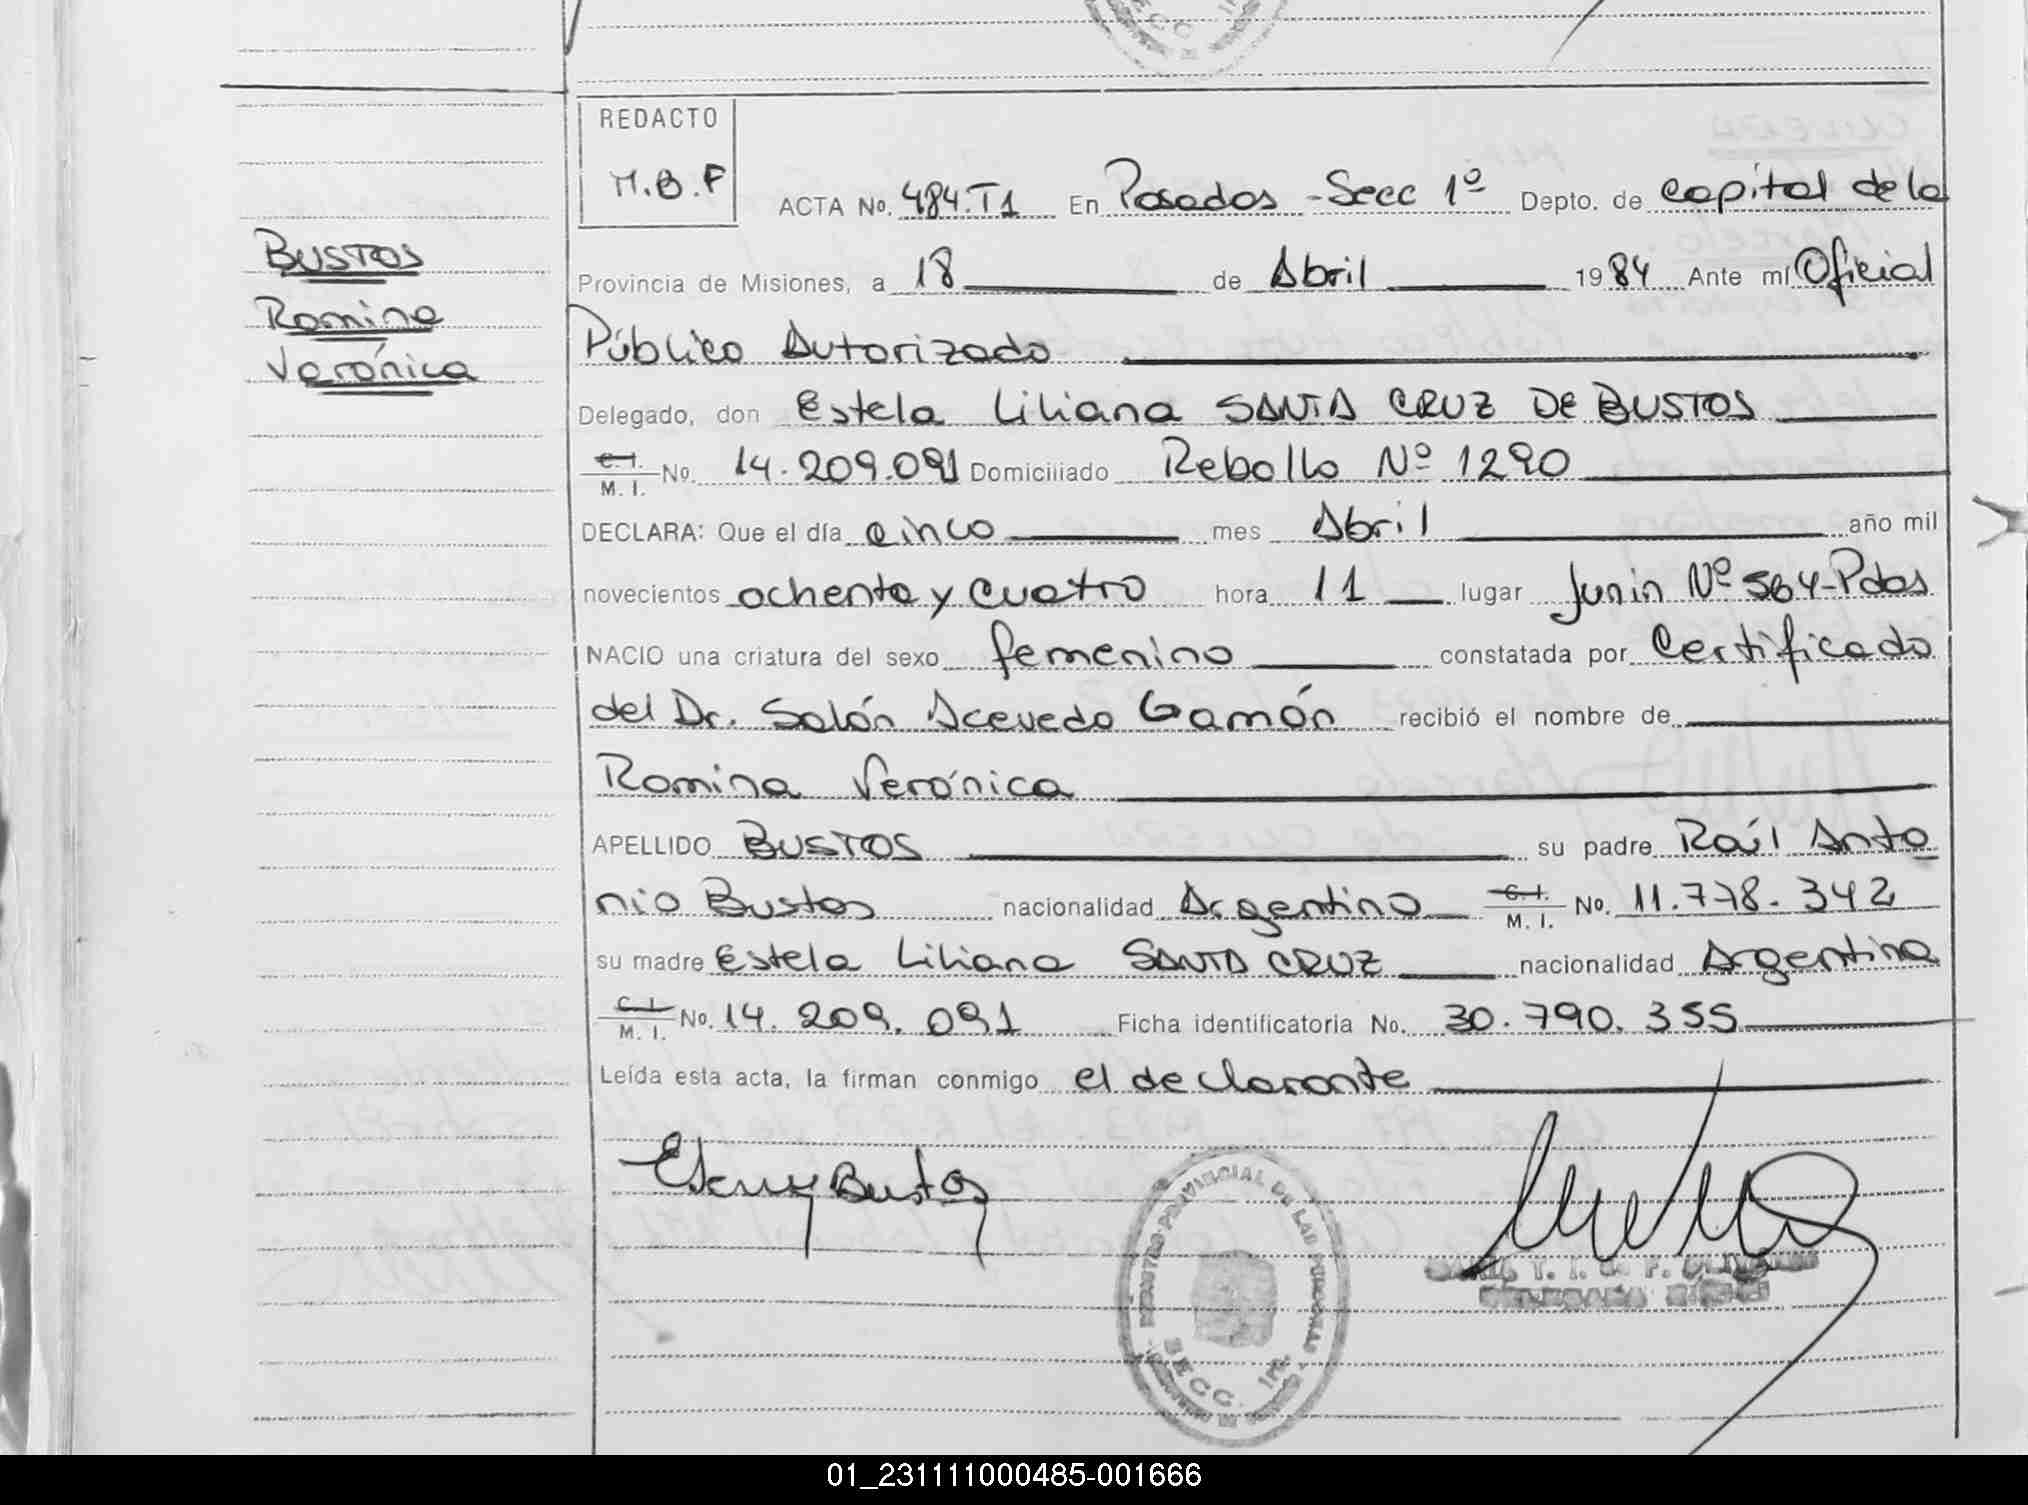 SECC 1
REDACTO
M.B.F
ACTA No. 484.T1 En Posadas -Secc 1º Depto. de Capital de la
BUSTOS
Romina
Verónica
Provincia de Misiones, a 18 de Abril 1984 Ante mí Oficial
Público Autorizado
Delegado, don Estela Liliana SANTA CRUZ DE BUSTOS
C. I. M. I. No. 14.209.091 Domiciliado Rebollo Nº 1290
DECLARA: Que el día cinco mes Abril año mil
novecientos ochenta y cuatro hora 11 lugar Junin Nº 564-Pdas
NACIO una criatura del sexo femenino constatada por Certificado
del Dr. Solón Acevedo Gamón recibió el nombre de
Romina Verónica
APELLIDO BUSTOS su padre Raúl Anto
nio Bustos nacionalidad Argentino C. I. M. I. No. 11.778.342
su madre Estela Liliana SANTA CRUZ nacionalidad Argentina
C. I. M. I. No. 14.209.091 Ficha identificatoria No. 30.790.355
Leída esta acta, la firman conmigo el declarante
Bustos
PROVINCIAL DE LAS PERSONAS
SECC. 1ra.
01_231111000485-001666